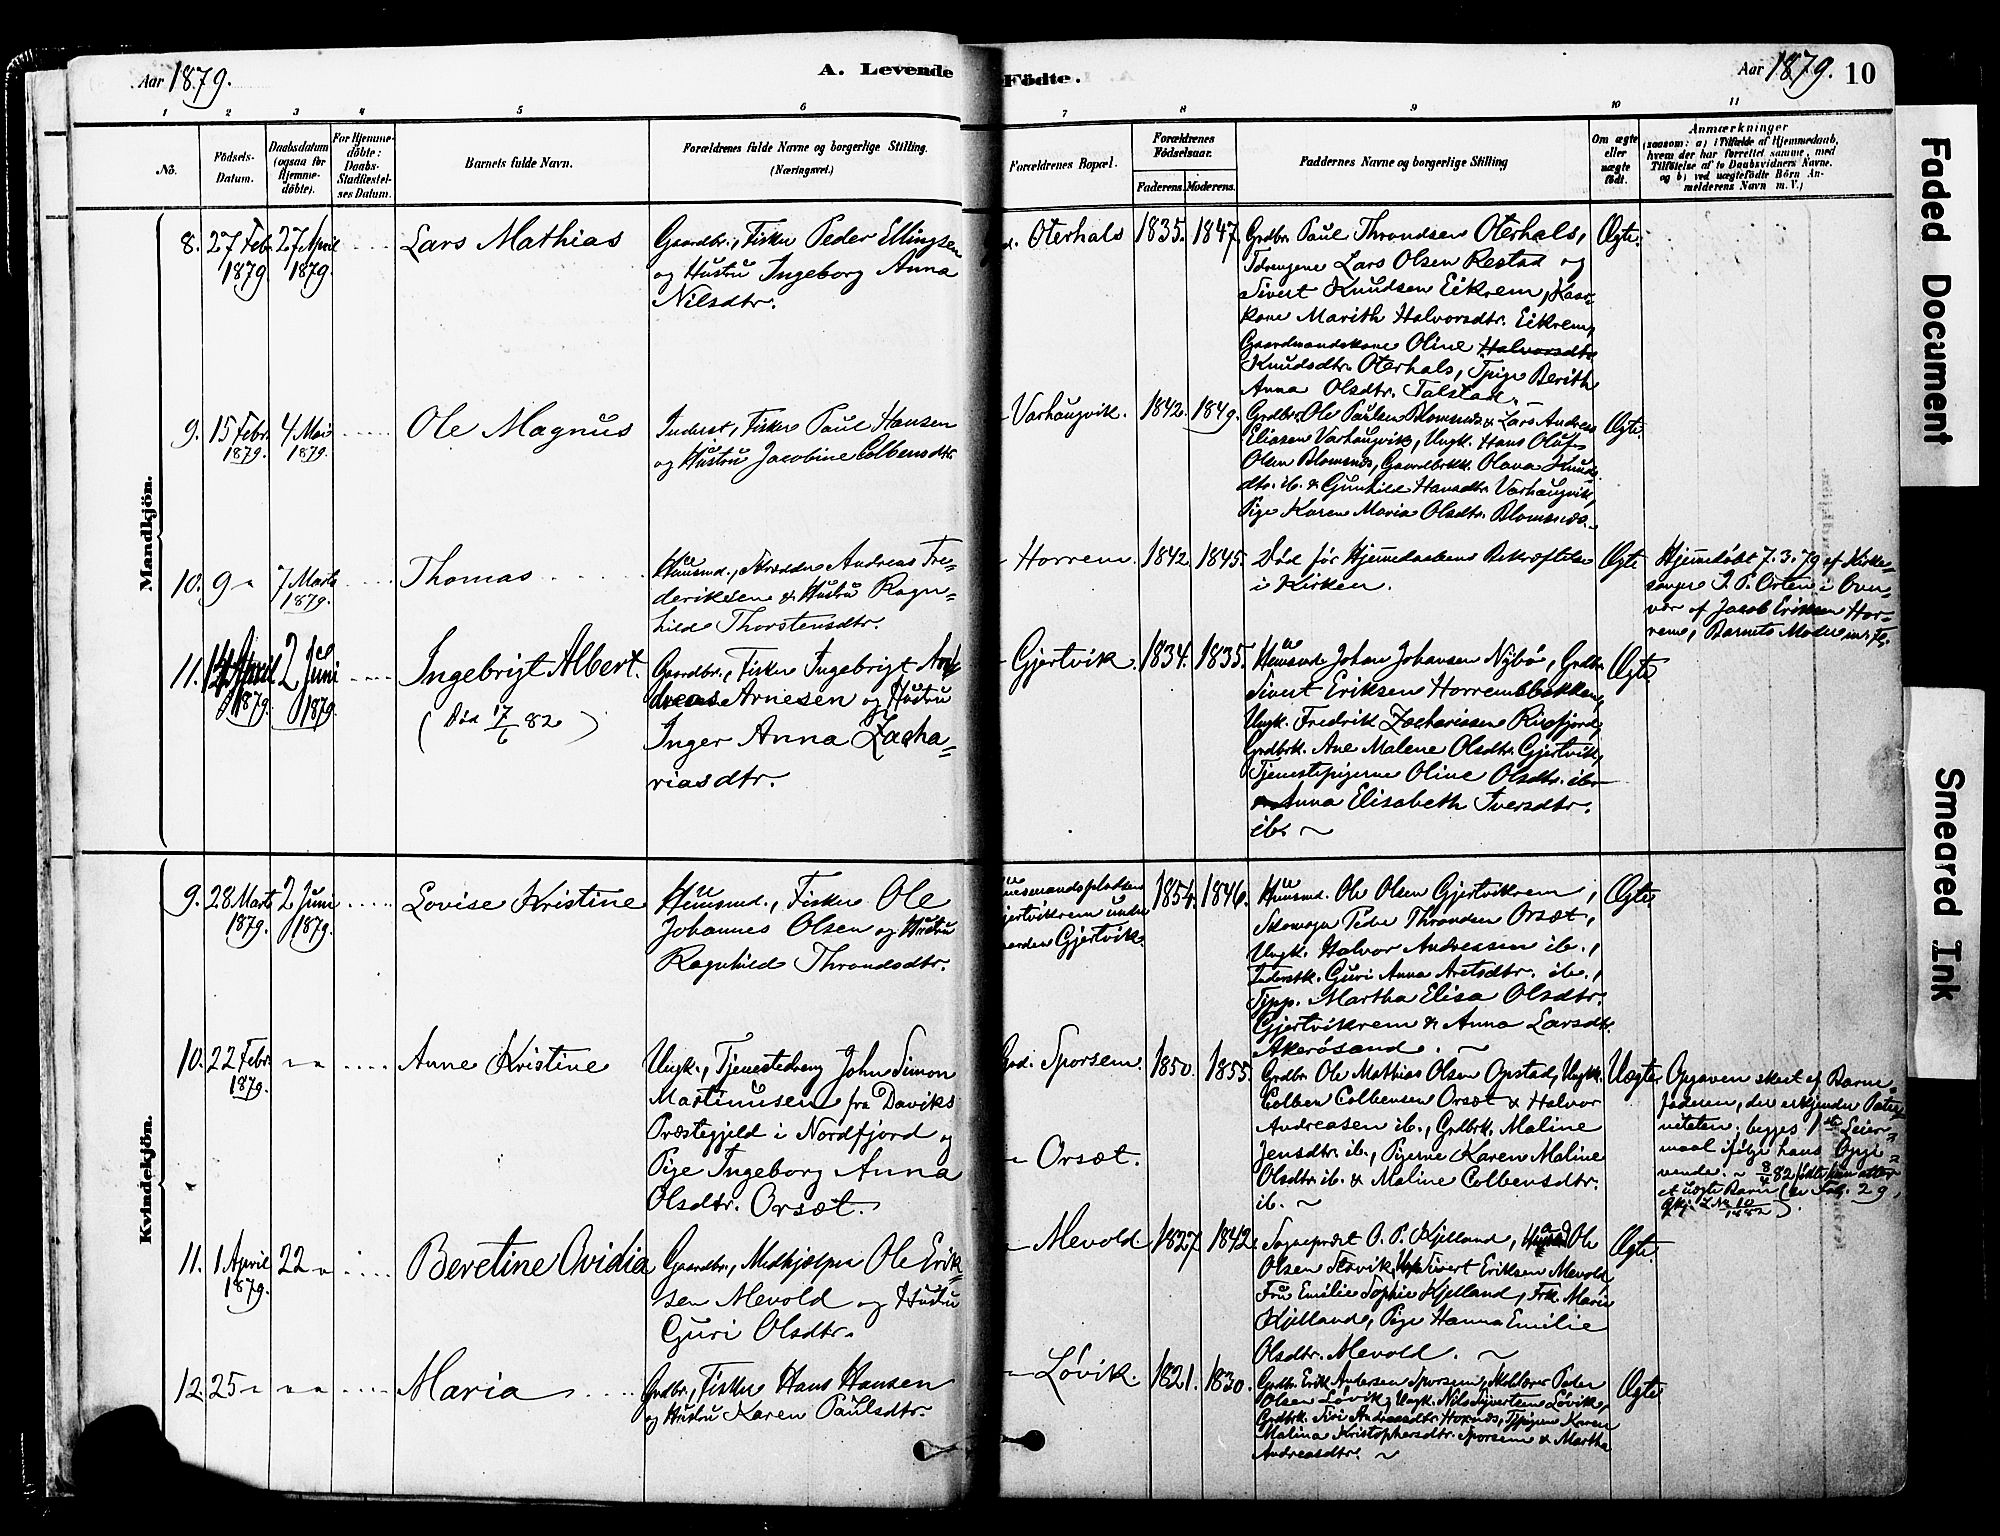 Aar 1879.
A. Levende Födte.
Aar 1879. 10
1 2 3 4 5 6 7 8 9 10 11
No.
Födsels-Datum.
Daabsdatum (ogsaa for Hjemme-döbte).
For Hjemme-döbte: Daabs-Stadfæstel-ses Datum.
Barnets fulde Navn.
Forældrenes fulde Navne og borgerlige Stilling. (Næringsvei.)
Forældrenes Bopæl.
Forældrenes Födselsaar.
Faderens. Moderens.
Faddernes Navne og borgerlige Stilling
Om ægte eller uægte födt.
Anmærkninger
(saasom: a) i Tilfælde af Hjemmedaab,
hvem der har forrettet samme, med
Tilföielse af to Daabsvidners Navne.
og b) ved uægtefödte Börn An-
melderens Navn m. V.)
Mandkjön.
8. 27 Feb. 1879 27 April 1879.
Lars Mathias
Gaardbr., Fisker Peder Ellingsen
og Hustru Ingeborg Anna
Nilsdtr.
Oterhals 1835. 1847.
Grdbr. Paul Throndsen Oterhals,
Tdrengene Lars Olsen Restad og
Sivert Knudsen Eikrem,
kone Marith Halvorsdtr. Eikrem,
Gaardmandskone Oline Halvorsdtr
Knudsdtr. Oterhals, Tpige Berith
Anna Olsdtr. Talstad.
Ægte.
9. 15 Febr. 1879. 4 Mai 1879.
Ole Magnus
Inderst, Fisker Paul Hansen
og Hustru Jacobine Colbensdtr
- Varhaugvik. 1842. 1849.
Grdbr. Ole Paulsen Blomsnæs & Lars Andreas
Eliasen Varhaugvik, Ungk. Hans Oluf
Olsen Blomsnæs, Gaardbrkk. Olava Knuds
dtr. ib. & Gunhild Hansdtr. Varhaugvik,
Pige Karen Maria Olsdtr. Blomsnæs.
Ægte.
10. 9 " 7 Marts 1879.
Thomas
Huusmd., Skrædder Andreas Fre-
deriksen & Hustru Ragn-
hild Thorstensdtr.
- Horrem. 1842 1845.
Död för Hjemmedaabens Bekræftelse
i Kirken.
Ægte
Hjemmedöbt 7.3.79 af Kirke-
sanger I. P. Orten i Over-
vær af Jacob Eriksen Hor-
rem, Barnets Moder m. fl.
11. 14 April 1879. 2 Juni 1879.
Ingebrigt Albert.
( Död 17/6 82 )
Gaardbr., Fisker Ingebrigt An-
dreas Arnesen og Hustru
Inger Anna Zacha-
riasdtr.
- Gjertvik. 1834. 1835.
Huusmd. Johan Johansen Nybø, Grdbr.
Sivert Eriksen Horremsbakken,
Ungk. Fredrik Zachariasen
Grdbrk. Ane Malene Olsdtr. Gjertvik,
Tjenestepigerne Oline Olsdtr. ib
Anna Elisabeth Iversdtr.
ib. ~
Ægte
Kvindekjön.
9. 28 Marts 1879. 2 Juni 1879.
Lovise Kristine
Huusmd., Fisker Ole
Johannes Olsen og Hustru
Ragnhild Throndsdtr.
uusmandspladsen
jertvikrem under
aarden Gjertvik.
1854. 1846.
Huusmd. Ole Olsen Gjertvikrem,
Skomager Peder Throndsen Orsæt,
Ungk. Halvor Andreassen ib.,
Inderstk. Guri Anna Aretsdtr. ib.,
Tjpp. Martha Elisa Olsdtr.
Gjertvikrem & Anna Larsdtr
Akerøsand. ~
Ægte
10. 22 Febr. 1879. " "
Anne Kristine
Ungk., Tjenestedreng John Simon
Martinusen fra Daviks
Præstegjeld i Nordfjord og
Pige Ingeborg Anna
Olsdtr. Orsæt.
Grd. Sporsem. 1850. 1855.
- Orsæt.
Grdbr. Ole Mathias Olsen Opstad, Ungk.
Colben Colbensen Orsæt & Halvor
Andreasen ib., Grdbrk. Maline
Jensdtr. ib., Pigerne Karen Maline
Olsdtr. ib. & Maline Colbensdtr.
ib. ~
Uægte
Opgaven skeet af Barne-
faderen, der erkjender Pater-
niteten; begges 1ste Leier-
maal ifølge hans Opgi-
vende. ~ 8/4 82 födte hun atter
et uægte Barn (se Fol. 29,
Qkj. LNr 10/1882).
11. 1 April 1879. 22 "
Beretine Ovidia
Gaardbr., Medhjælper Ole Erik-
sen Mevold og Hustru
Guri Olsdtr.
- Mevold 1827. 1842.
Sognepræst O. P. Kjelland, Ole
Olsen Sivert Eriksen Mevold,
Fru Emilie Sophie Kjelland, Frk. Marie
Kjelland, Pige Hanna Emilie
Olsdtr. Mevold. ~
Ægte
12. 25 " " "
Maria
Grdbr., Fisker Hans Hansen
og Hustru Karen Paulsdtr.
- Løvik. 1821. 1830.
Grdbr. Erik Andersen Sporsem, Peder
Olsen Løvik, Ungk. Nils Syvertsen Løvik,
Grdbrk. Siri Andreasdtr. Hoxnæs, Tjpigerne Karen
Malina Kristophersdtr. Sporsem & Martha
Andreasdtr. ~
Ægte
Faded Document
Smeared Ink